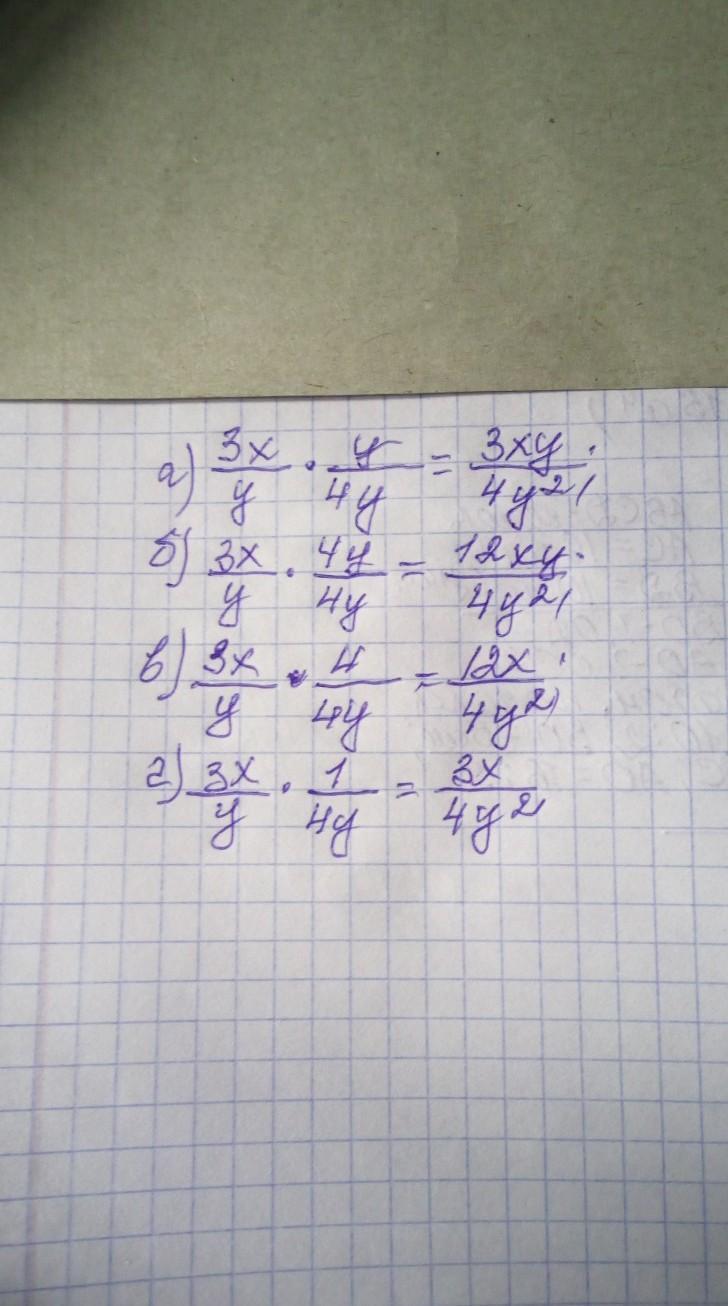 а) 3x/y · y/4y = 3xy/4y²;
б) 3x/y · 4y/4y = 12xy/4y²;
в) 3x/y · 4/4y = 12x/4y²;
г) 3x/y · 1/4y = 3x/4y²